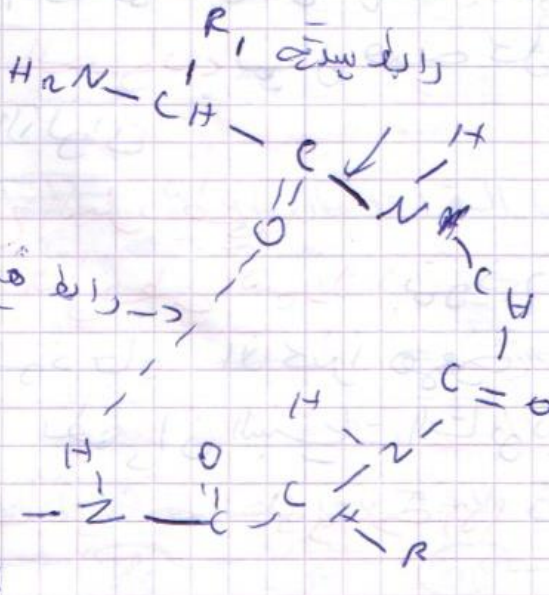 R₁
رابطة ببتيدية
H₂N — CH
C
H
O
N
رابطة
CH
C = O
H
H
O
N
— N — C — CH
R